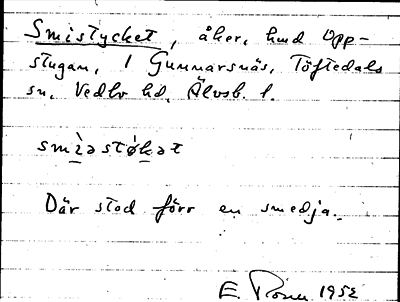 Smistycket, åker, hmd Upp-
stugan, 1 Gunnarsnäs, Töftedals
sn, Vedbo hd, Älvsb. l.
smìəstø̀kət
Där stod förr en smedja.
E. 1952